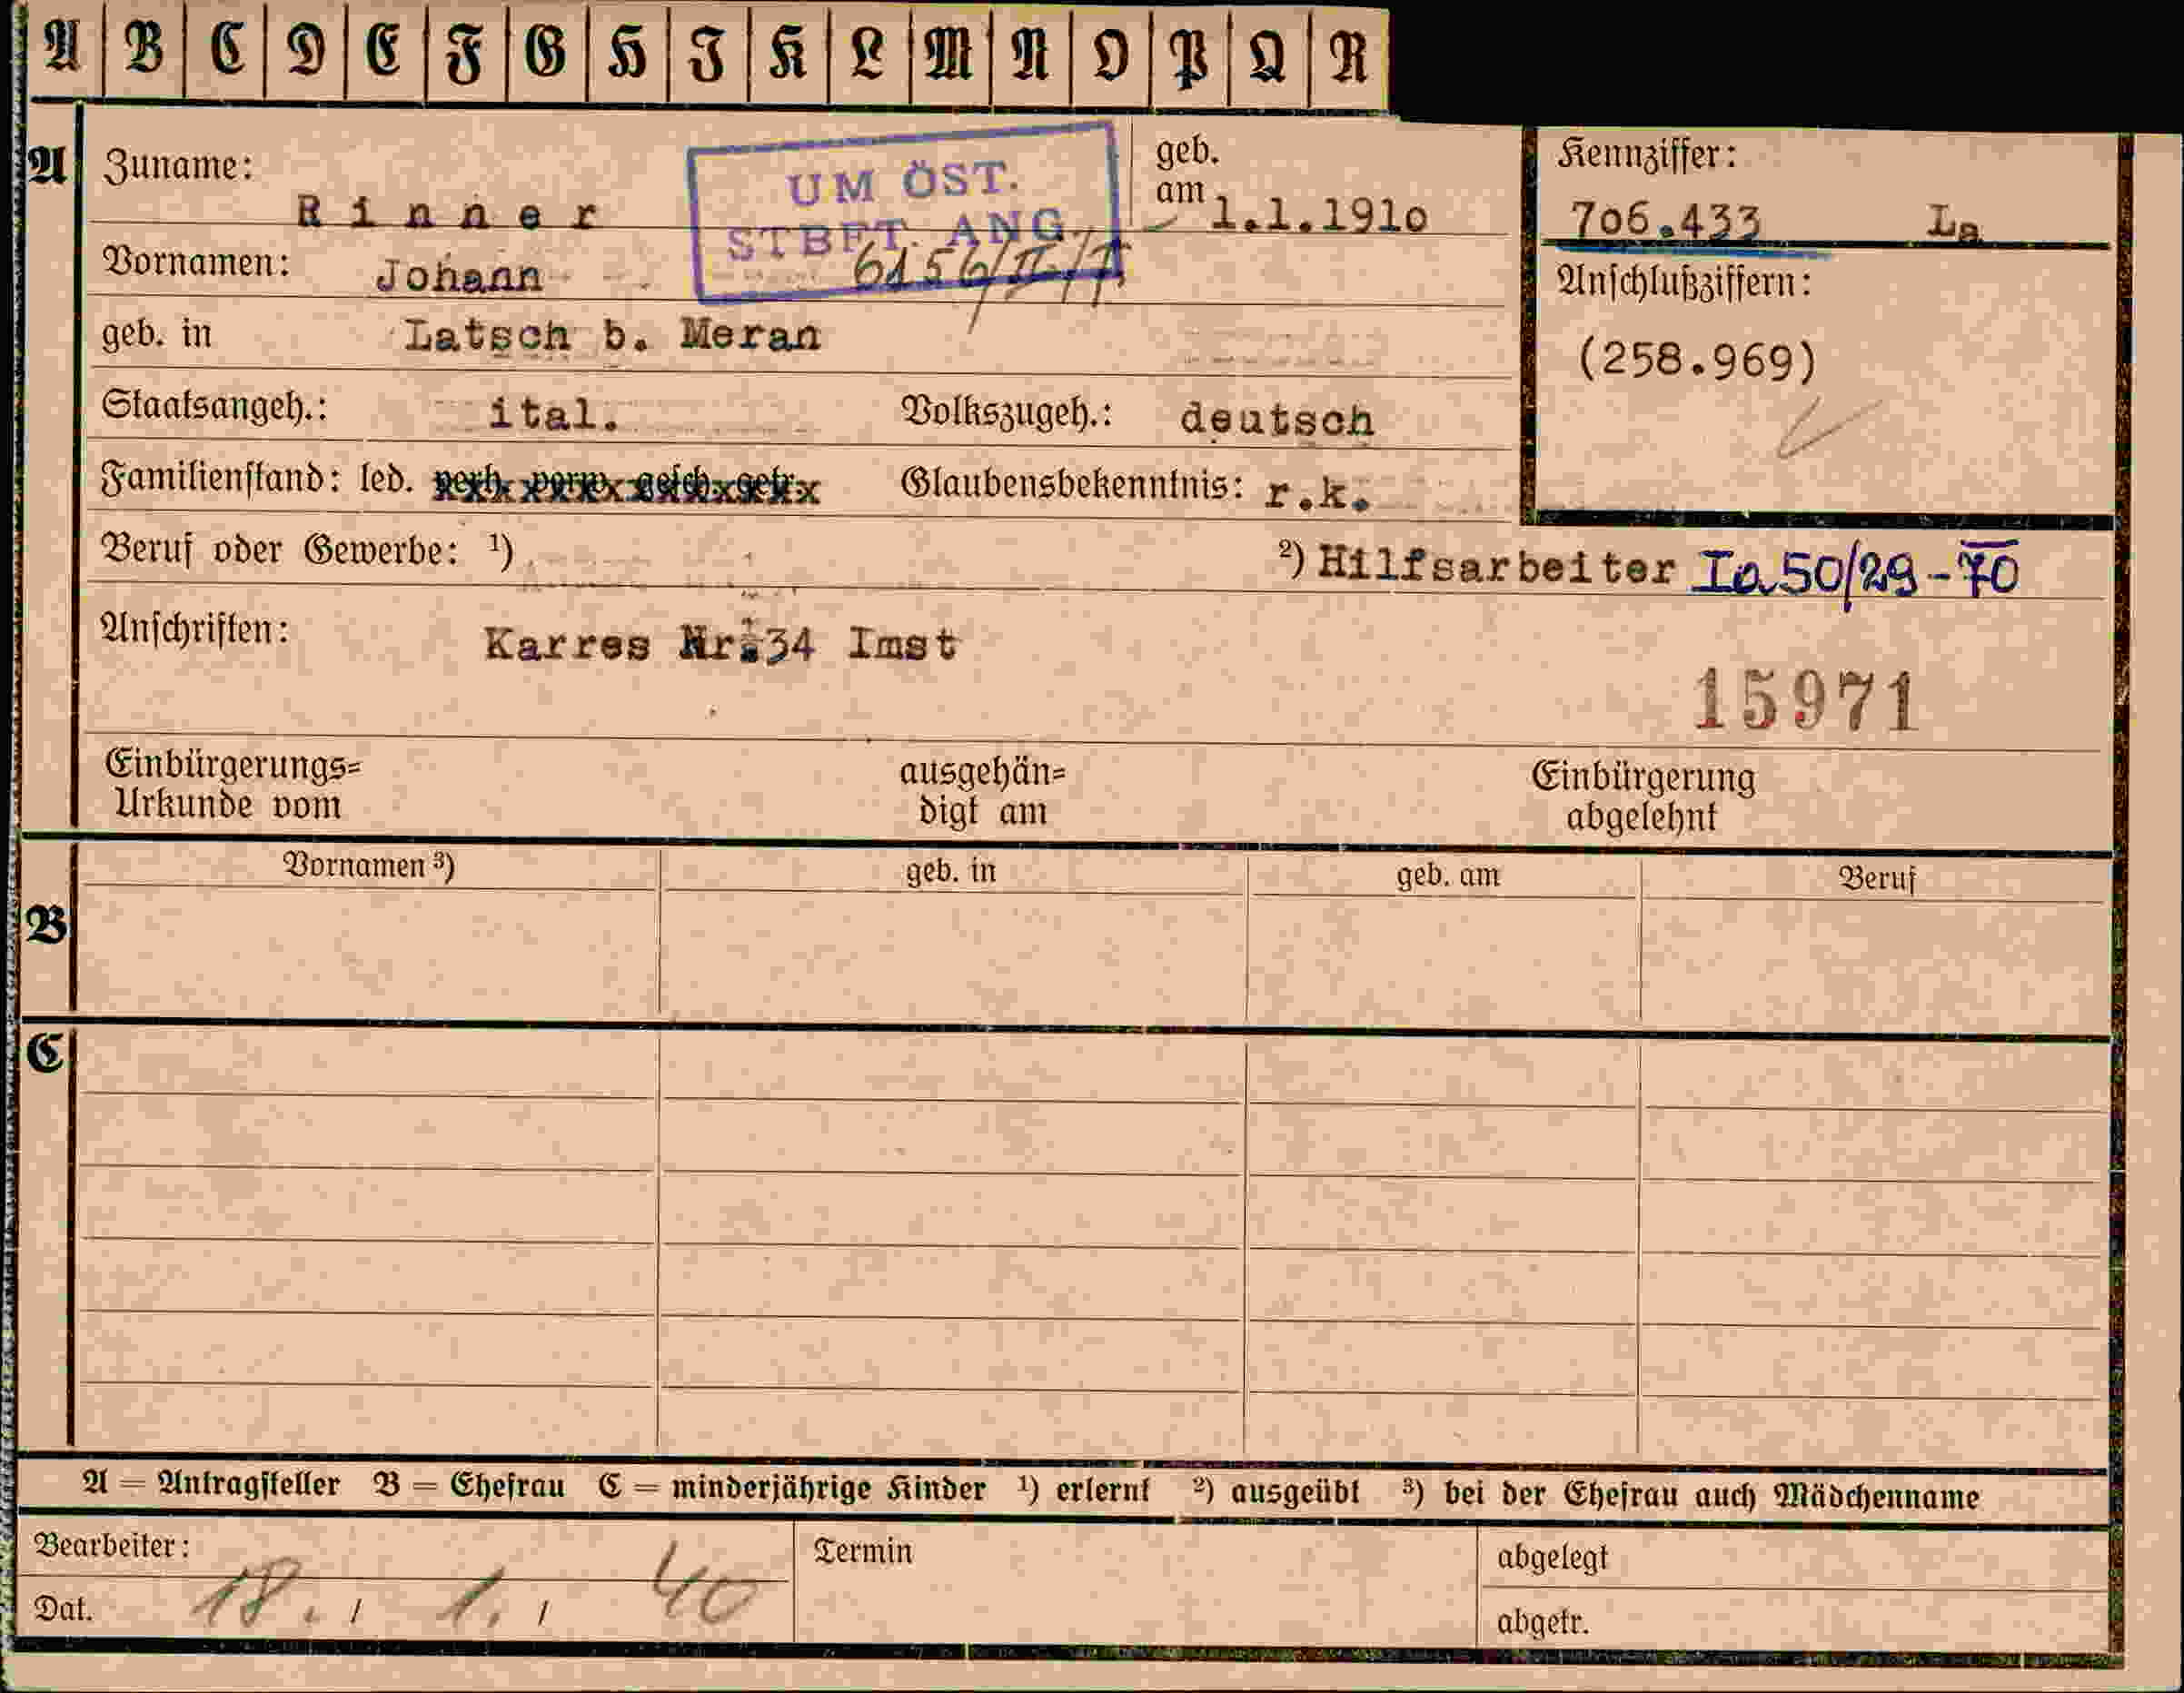 A B C D E F G H J K L M N O P Q R
A Zuname: Rinner
UM ÖST.
STBFT. ANG.
geb. am 1.1.1910
Kennziffer:
706.433 La
Vornamen: Johann
Anschlußziffern:
(258.969)
geb. in Latsch b. Meran
Staatsangeh.: ital. Volkszugeh.: deutsch
Familienstand: led. verh. verw. gesch. getr. Glaubensbekenntnis: r.k.
Beruf oder Gewerbe: ¹) ²) Hilfsarbeiter Ia 50/29-70
Anschriften: Karres Nr.34 Imst
15971
Einbürgerungs= Urkunde vom
ausgehän= digt am
Einbürgerung abgelehnt
B Vornamen ³) geb. in geb. am Beruf
C
A = Antragsteller B = Ehefrau C = minderjährige Kinder ¹) erlernt ²) ausgeübt ³) bei der Ehefrau auch Mädchenname
Bearbeiter: Termin abgelegt
Dat. 18. / 1. / 40 abgetr.